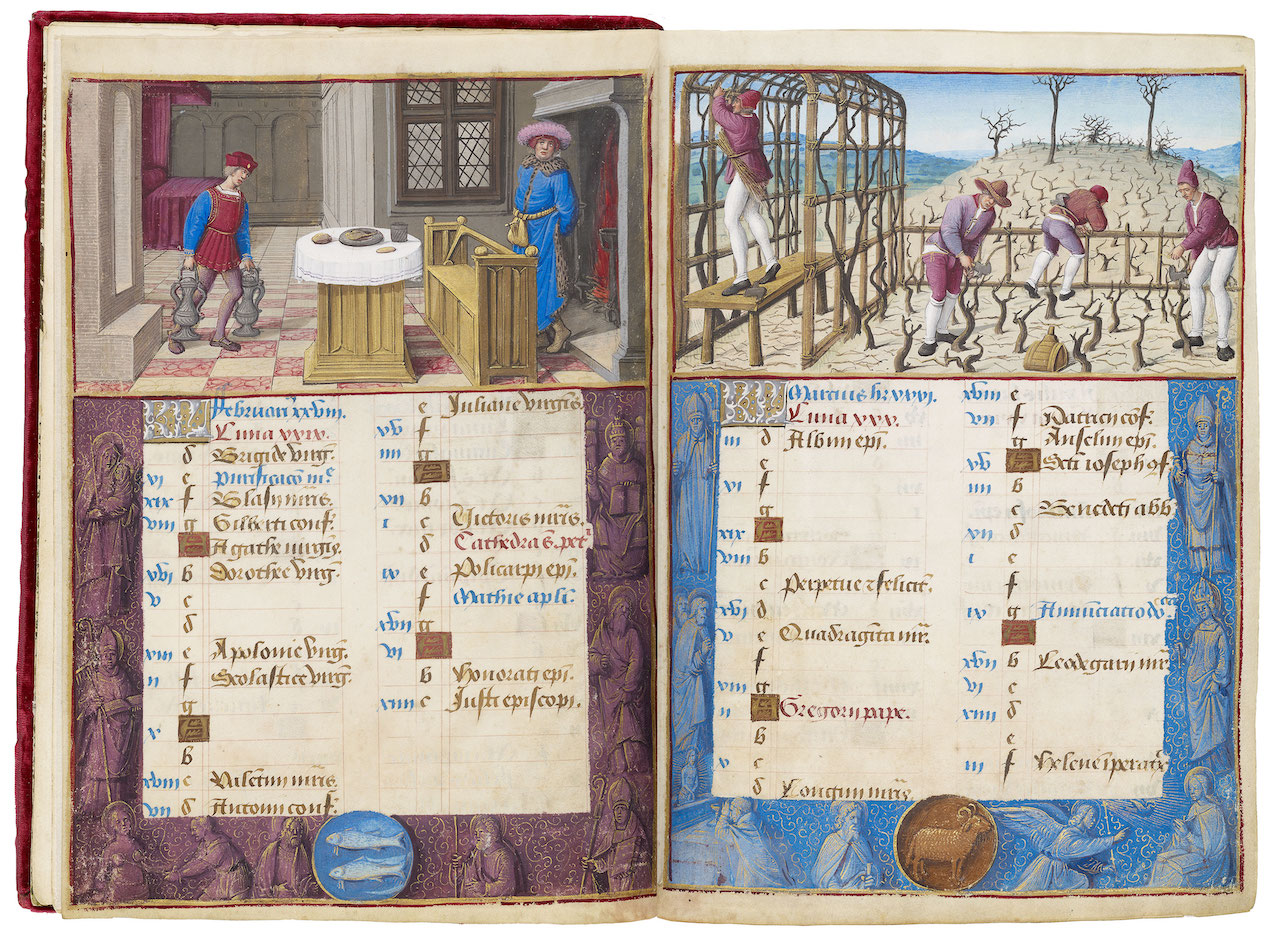 KL Februari9 xxviij.
Luna xxix.
d Brigide virg.
vi e Purificacō
xix f Blasii mris.
viii g Gilberti conf.
A Agathe virgis.
xvi b Dorothee virg.
v c
d
xiii e Apolonie virg.
ii f Scolastice virg.
g
x A
b
xviii c Valētini mris.
vii d Antonii conf.
e Juliane virgis.
xv f
iiii g
A
xii b
i c Victoris mris.
d Cathedra s. petʳ
ix e Policarpi epi.
f Mathie apli.
xvii g
vi A
b Honorati epi.
xiiii c Justi episcopi.
KL Marcius hz xxxj.
Luna xxx.
iii d Albini epi.
e
vi f
g
xix A
viii b
c Perpetue ⁊ felicit.
xvi d
v e Quadragīta mr.
f
xiii g
ii A Gregorii pape.
b
x c
d Longini mris.
xviii e
vii f Patricii conf.
g Anselmi epi.
xv A Scti ioseph
iiii b
c Benedicti abb.
xii d
i e
f
ix g Annunciatio
A
xvii b Leodegarii mr.
vi c
xiiii d
e
iii f Helene īperatʳ